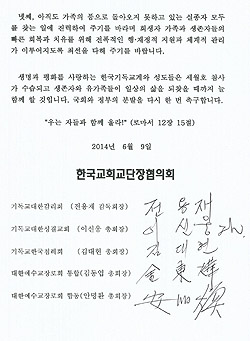 넷째, 아직도 가족의 품으로 돌아오지 못하고 있는 실종자 모두
를 찾는 일에 전력하여 주기를 바라며 희생자 가족과 생존자들의
빠른 회복과 치유를 위해 전폭적인 행·재정적 지원과 체계적 관리
가 이루어지도록 최선을 다해 주기를 바랍니다.
생명과 평화를 사랑하는 한국기독교계와 성도들은 세월호 참사
가 수습되고 생존자와 유가족들이 일상의 삶을 되찾을 때까지 늘
함께 할 것입니다. 국회와 정부의 분발을 다시 한 번 촉구합니다.
"우는 자들과 함께 울라!" (로마서 12장 15절)
2014년 6월 9일
한국교회교단장협의회
기독교대한감리회 (전용재 감독회장) 전용재
기독교대한성결교회 (이신웅 총회장) 이신웅
기독교한국침례회 (김대현 총회장) 김대현
대한예수교장로회 통합(김동엽 총회장) 金東燁
대한예수교장로회 합동(안명환 총회장) 安明煥